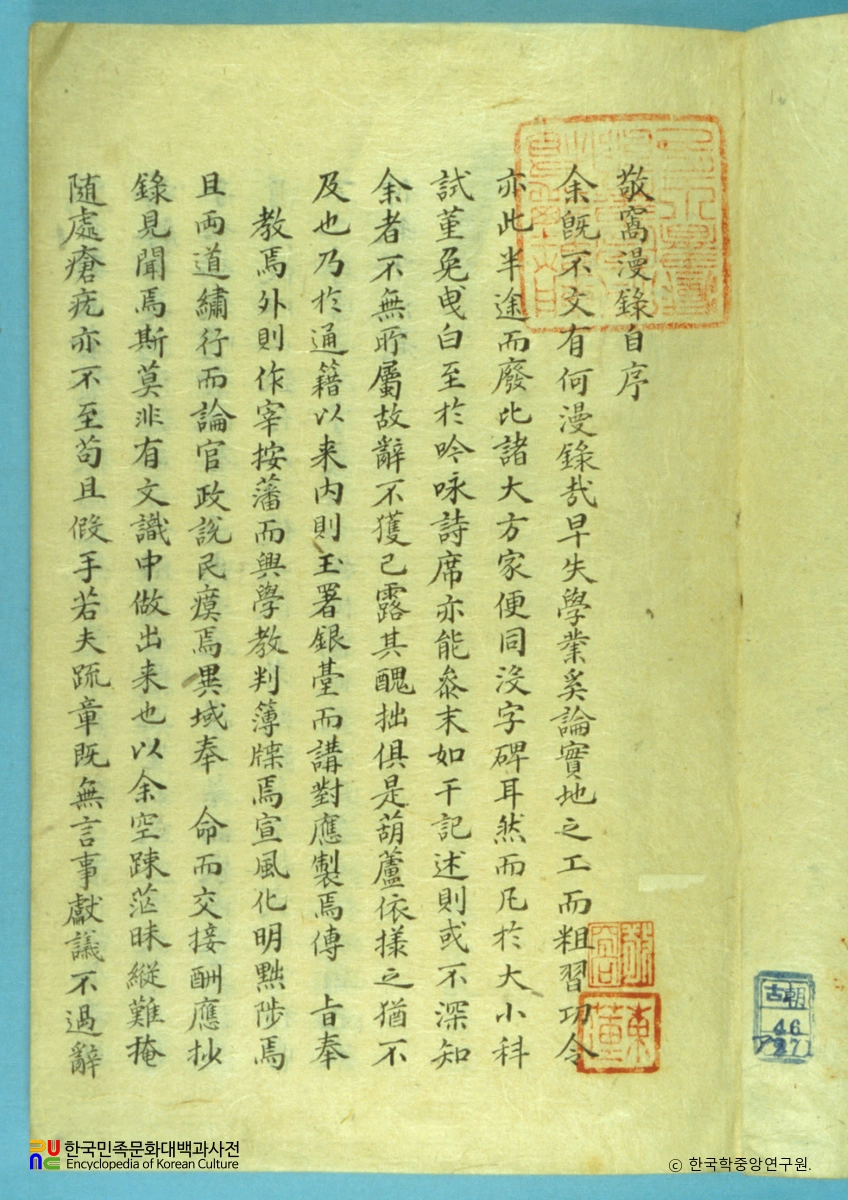 敬窩漫錄自序
余旣不文有何漫錄哉早失學業奚論實地之工而粗習功令
亦此半途而廢比諸大方家便同沒字碑耳然而凡於大小科
試菫免曳白至於吟咏詩席亦能叅末如干記述則或不深知
余者不無所屬故辭不獲已露其醜拙俱是葫蘆依㨾之猶不
及也乃於通籍以来內則玉署銀臺而講對應製焉傳 旨奉
教焉外則作宰按藩而興學教判簿牒焉宣風化明黜陟焉
且两道繡行而論官政說民瘼焉異域奉 命而交接酬應抄
錄見聞焉斯莫非有文識中做出来也以余空踈茫昧縱難掩
随處瘡疣亦不至苟且假手若夫疏章既無言事獻議不過辭
敬窩
東菫
古朝
46
가271
한국민족문화대백과사전
Encyclopedia of Korean Culture
© 한국학중앙연구원.